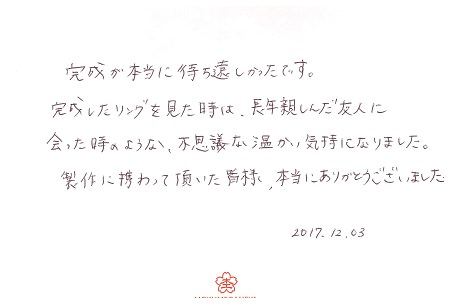 完成が本当に待ち遠しかったです。
完成したリングを見た時は、長年親しんだ友人に
会った時のような、不思議な温かい気持になりました。
製作に携わって頂いた皆様、本当にありがとうございました
2017.12.03